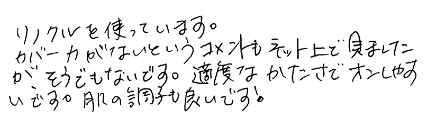 リノクルを使っています。
カバー力がないというコメントもネット上で見ました
が、そうでもないです。適度なかたさでオンしやす
いです。肌の調子も良いです!